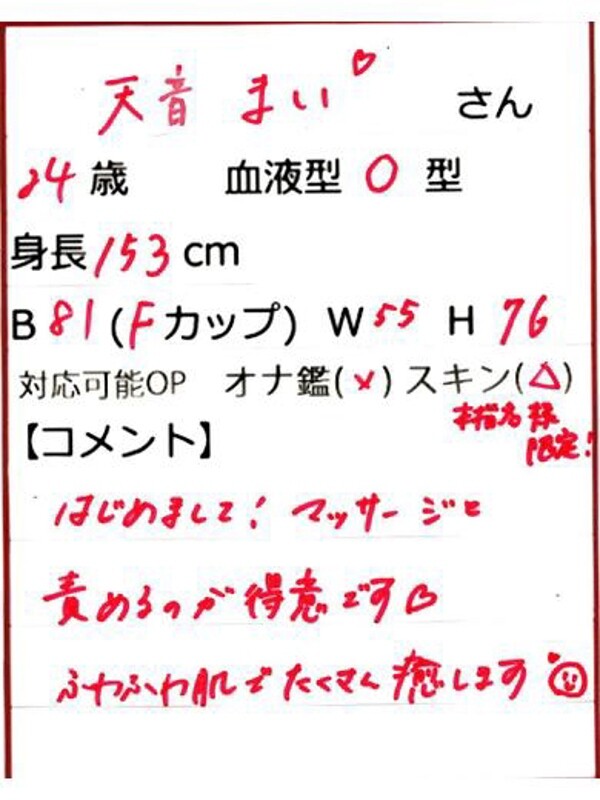 天音 まい♡ さん
24歳 血液型 O 型
身長153cm
B 81(Fカップ) W55 H 76
対応可能OP オナ鑑(×)スキン(△)
本指名様
限定!
【コメント】
はじめまして! マッサージと
責めるのが得意です♡
ふわふわ肌でたくさん癒します